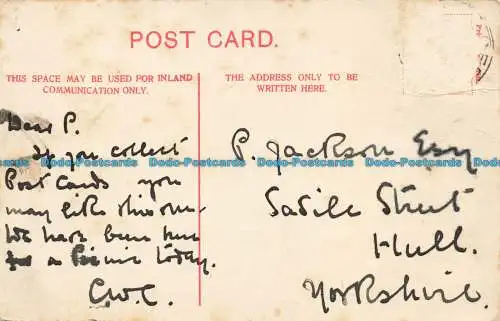 POST CARD.
THIS SPACE MAY BE USED FOR INLAND
COMMUNICATION ONLY.
THE ADDRESS ONLY TO BE
WRITTEN HERE.
Dear P.
If you collect
Post Cards you
may like this one.
We have been here
for a Picnic today.
C.W.C.
P. Jackson Esq
Savile Street
Hull.
Yorkshire.
Dodo-Postcards Dodo-Postcards Dodo-Postcards